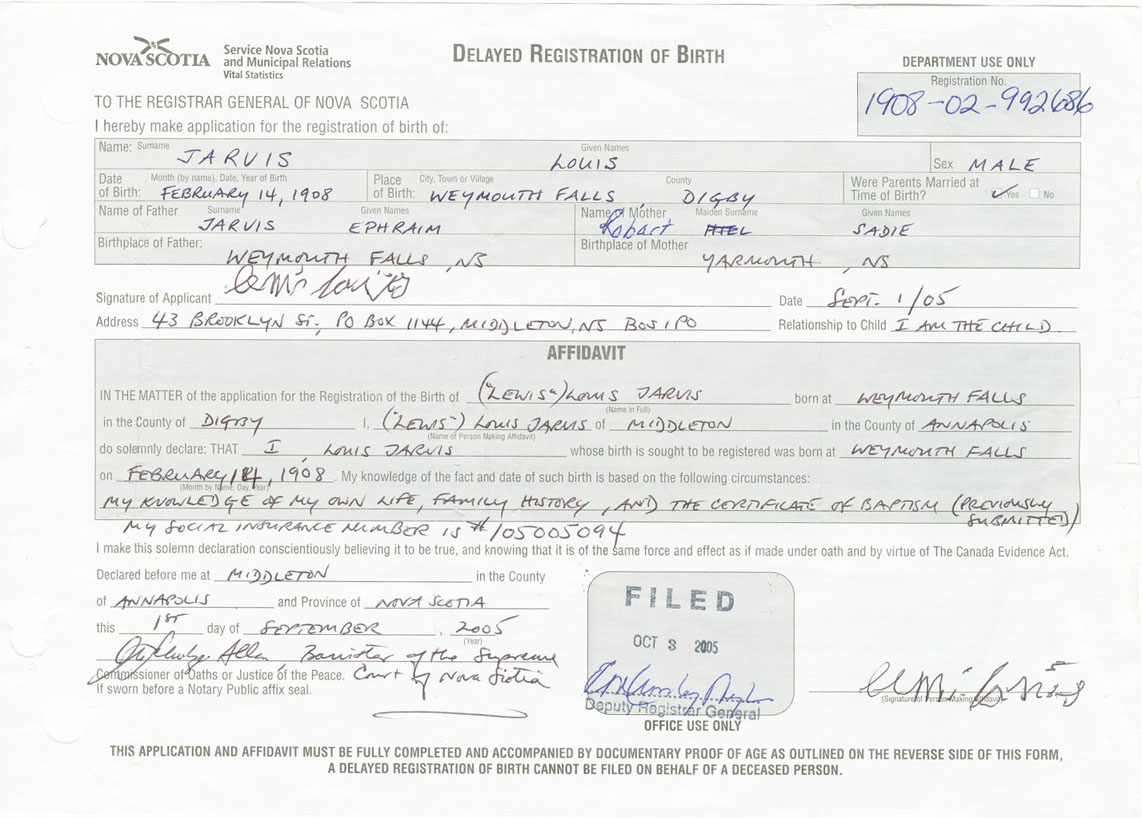 NOVA SCOTIA
Service Nova Scotia
and Municipal Relations
Vital Statistics
DELAYED REGISTRATION OF BIRTH
DEPARTMENT USE ONLY
Registration No.
1908-02-992686
TO THE REGISTRAR GENERAL OF NOVA SCOTIA
I hereby make application for the registration of birth of:
Name: Surname JARVIS Given Names LOUIS Sex MALE
Date of Birth: Month (by name), Date, Year of Birth FEBRUARY 14, 1908 Place of Birth: City, Town or Village WEYMOUTH FALLS County DIGBY Were Parents Married at Time of Birth? ✓ Yes No
Name of Father Surname JARVIS Given Names EPHRAIM Name of Mother Maiden Surname Robart Given Names SADIE
Birthplace of Father: WEYMOUTH FALLS, NS Birthplace of Mother YARMOUTH, NS
Signature of Applicant Date SEPT. 1/05
Address 43 BROOKLYN St., PO BOX 1144, MIDDLETON, NS BOS 1PO Relationship to Child I AM THE CHILD
AFFIDAVIT
IN THE MATTER of the application for the Registration of the Birth of ("LEWIS") LOUIS JARVIS born at WEYMOUTH FALLS
(Name in Full)
in the County of DIGBY I, ("LEWIS") LOUIS JARVIS of MIDDLETON in the County of ANNAPOLIS
(Name of Person Making Affidavit)
do solemnly declare: THAT I, LOUIS JARVIS whose birth is sought to be registered was born at WEYMOUTH FALLS
on FEBRUARY 14, 1908. My knowledge of the fact and date of such birth is based on the following circumstances:
(Month by Name, Day, Year)
MY KNOWLEDGE OF MY OWN LIFE, FAMILY HISTORY, AND THE CERTIFICATE OF BAPTISM (PREVIOUSLY SUBMITTED)
MY SOCIAL INSURANCE NUMBER IS #105005094
I make this solemn declaration conscientiously believing it to be true, and knowing that it is of the same force and effect as if made under oath and by virtue of The Canada Evidence Act.
Declared before me at MIDDLETON in the County
of ANNAPOLIS and Province of NOVA SCOTIA
this 1ST day of SEPTEMBER, 2005
(Year)
Allen Barrister of the Supreme
Commissioner of Oaths or Justice of the Peace. Court of Nova Scotia
If sworn before a Notary Public affix seal.
FILED
OCT 3 2005
Deputy Registrar General
OFFICE USE ONLY
(Signature of Person Making Affidavit)
THIS APPLICATION AND AFFIDAVIT MUST BE FULLY COMPLETED AND ACCOMPANIED BY DOCUMENTARY PROOF OF AGE AS OUTLINED ON THE REVERSE SIDE OF THIS FORM,
A DELAYED REGISTRATION OF BIRTH CANNOT BE FILED ON BEHALF OF A DECEASED PERSON.